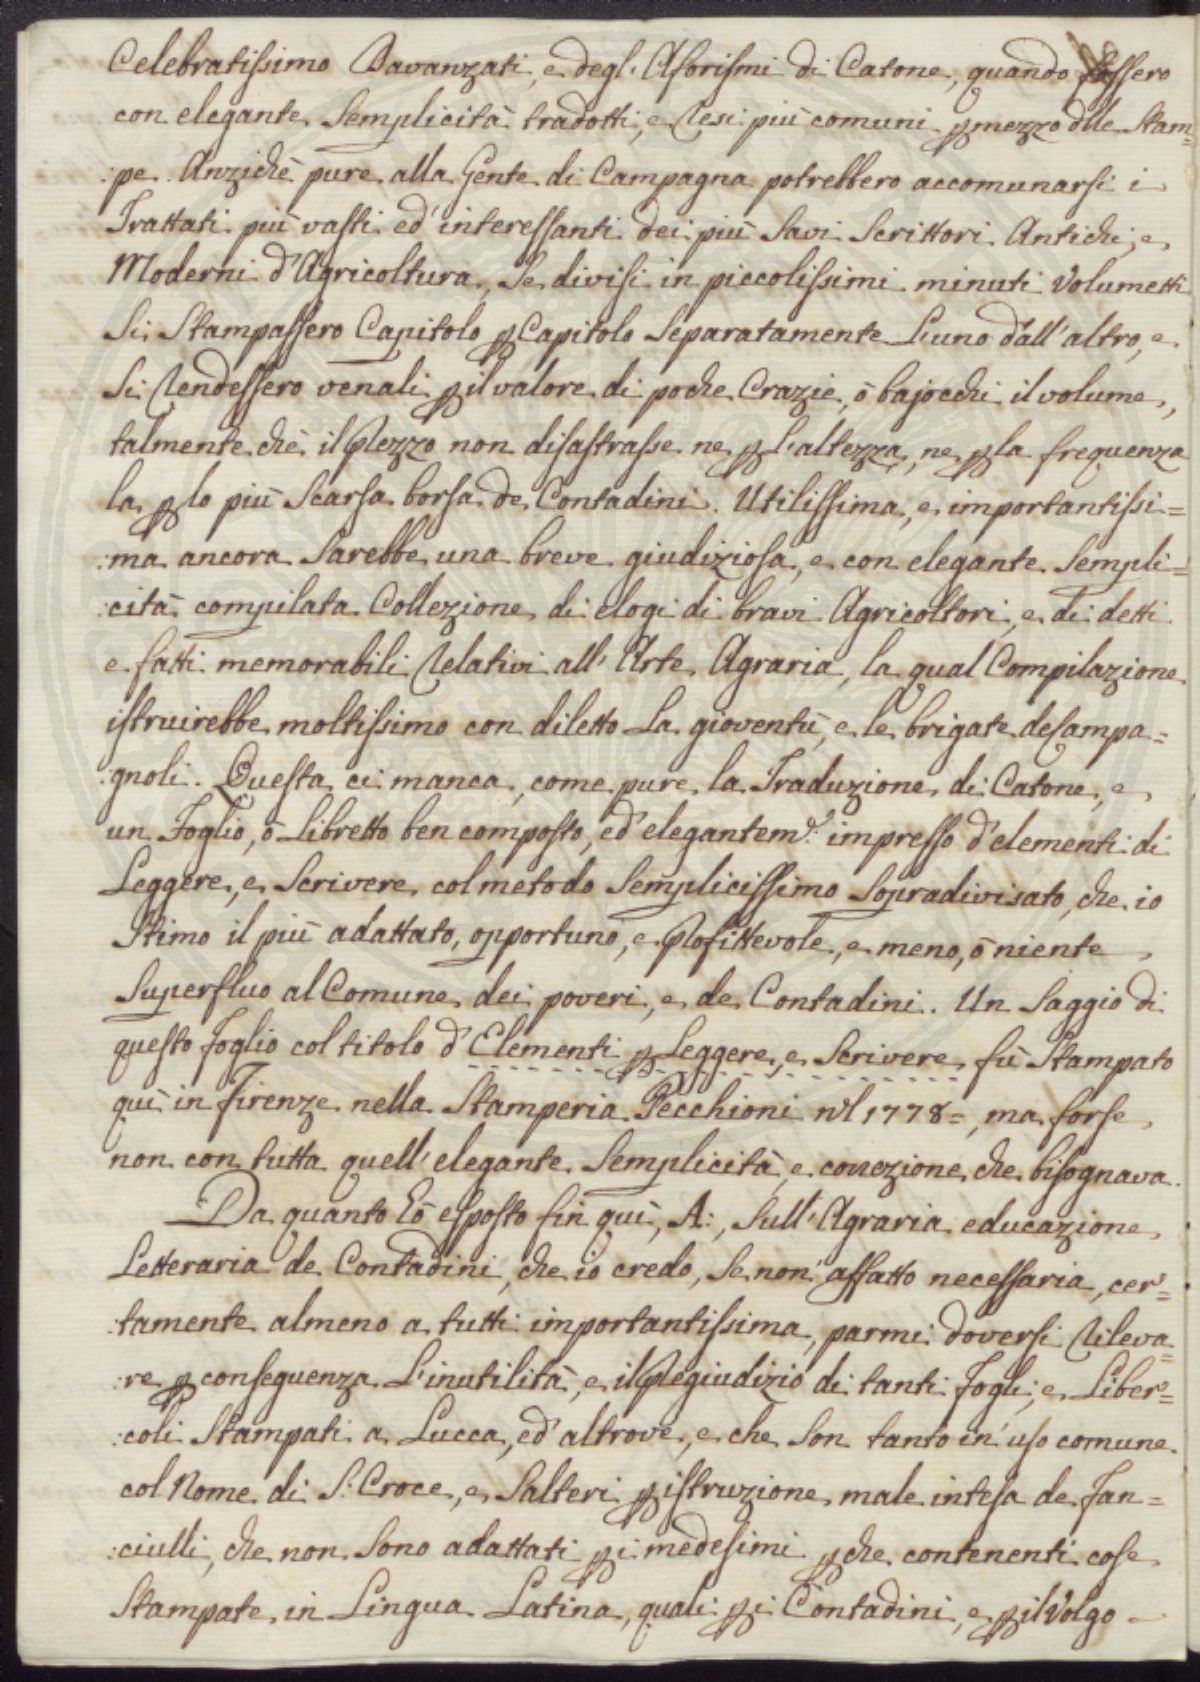 Celebratissimo Davanzati, e degl'Aforismi di Catone, quando fossero
con elegante Semplicità tradotti, e resi più comuni p mezzo dlle Stam=
:pe. Anzichè pure alla Gente di Campagna potrebbero accomunarsi i
Trattati più vasti ed' interessanti dei più Savi Scrittori Antichi, e
Moderni d'Agricoltura, Se divisi in piccolissimi minuti Volumetti
Si Stampassero Capitolo p Capitolo Separatamente L'uno dall'altro, e
Si rendessero venali p il valore di poche Crazie, ò bajocchi il volume,
talmente chè il prezzo non disastrasse ne p l'altezza, ne p la frequenza
la p lo più Scarsa borsa de Contadini. Utilissima, e importantissi=
:ma ancora Sarebbe una breve giudiziosa, e con elegante Sempli=
:cità compilata Collezione di elogi di bravi Agricoltori, e di detti
e fatti memorabili relativi all'Arte Agraria, la qual Compilazione
istruirebbe moltissimo con diletto La gioventù, e le brigate de Campa=
:gnoli. Questa ci manca, come pure la Traduzione di Catone, e
un Foglio, ò Libretto ben composto, ed' elegantem.e impresso d'elementi di
Leggere, e Scrivere col metodo Semplicissimo Sopradivisato, che io
Stimo il più adattato, opportuno, e profittevole, e meno, ò niente
Superfluo al Comune dei poveri, e de Contadini. Un Saggio di
questo foglio col titolo d'Elementi p Leggere, e Scrivere fù Stampato
quì in Firenze nella Stamperia Pecchioni nel 1778=, ma forse
non con tutta quell'elegante Semplicità, e correzione che bisognava.
Da quanto hò esposto fin quì, A:, Sull'Agraria educazione
Letteraria de Contadini, che io credo, Se non' affatto necessaria, cer=
:tamente almeno a tutti importantissima, parmi doversi rileva=
:re p conseguenza L'inutilità, e il pregiudizio di tanti fogli, e Liber=
:coli Stampati a Lucca, ed' altrove, e che Son tanto in' uso comune
col Nome di S. Croce, e Salteri p istruzione male intesa de fan=
:ciulli, che non Sono adattati p i medesimi pche contenenti cose
Stampate in Lingua Latina, quali p i Contadini, e p il Volgo